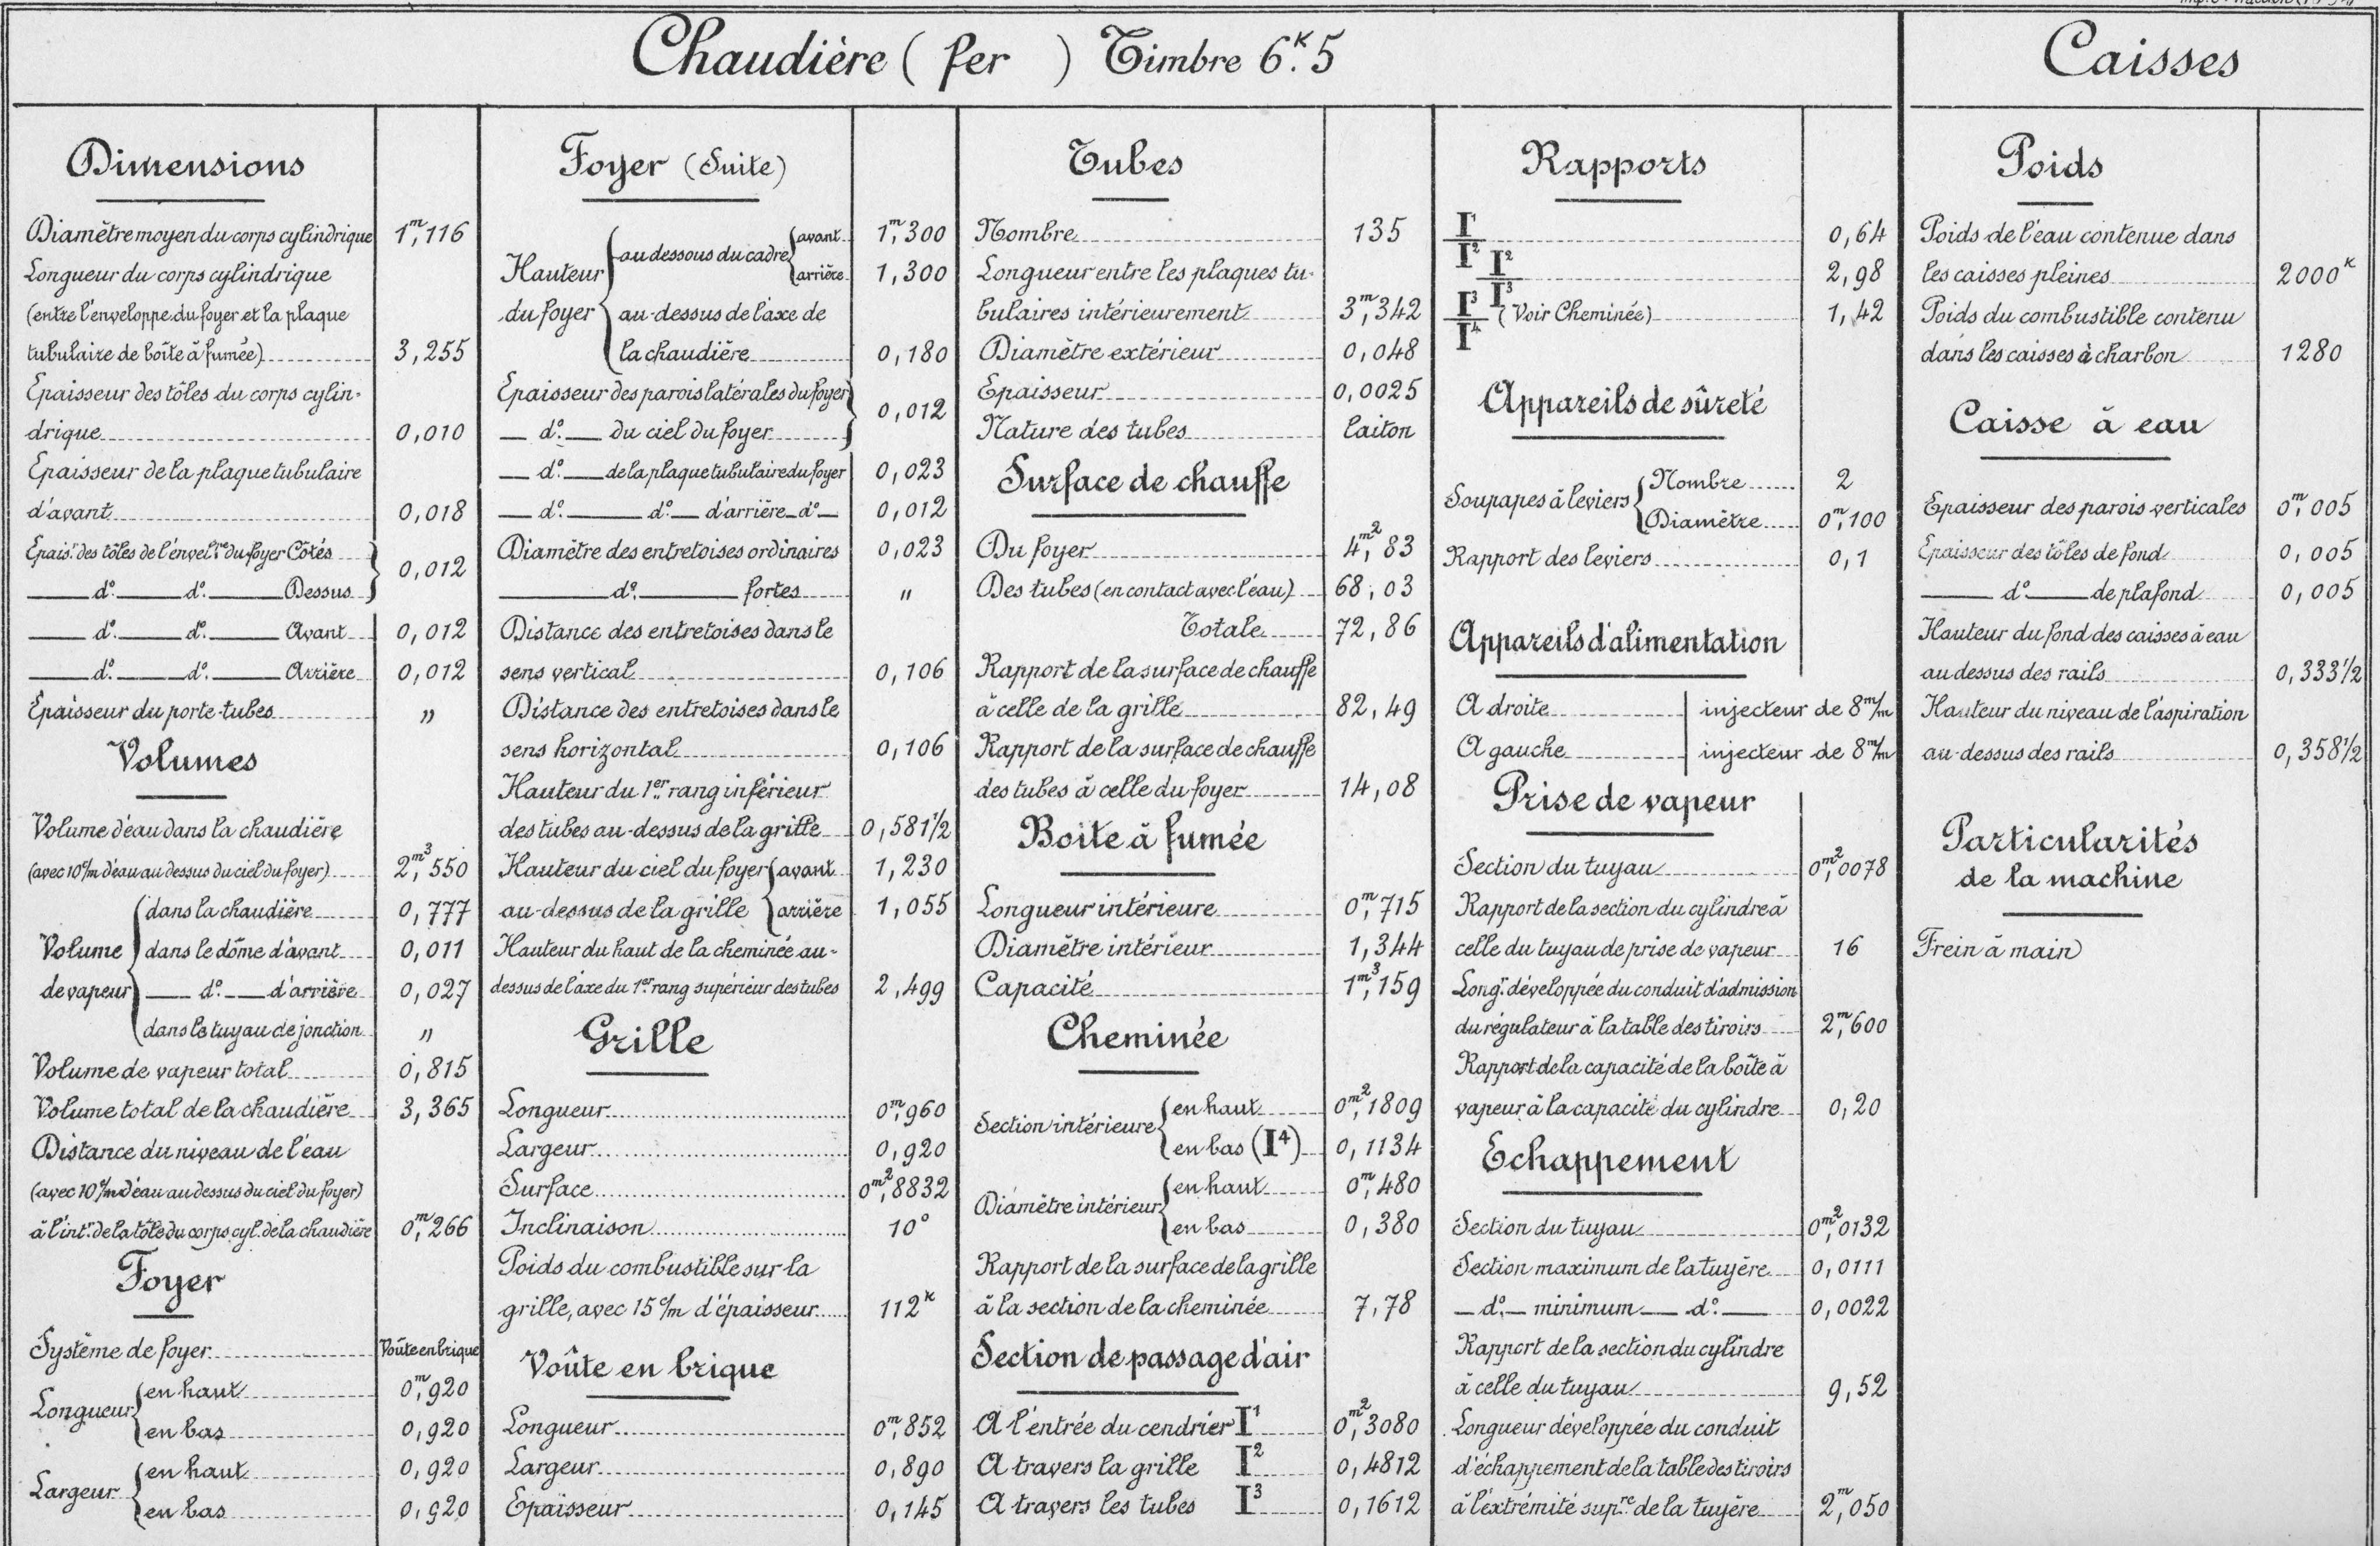 Chaudière ( fer ) Timbre 6K.5
Dimensions
Diamètre moyen du corps cylindrique 1m,116
Longueur du corps cylindrique
(entre l'enveloppe du foyer et la plaque
tubulaire de boîte à fumée) 3,255
Epaisseur des tôles du corps cylin-
drique 0,010
Epaisseur de la plaque tubulaire
d'avant 0,018
Epaisr des tôles de l'envelppe du foyer Côtés
— do — do — Dessus } 0,012
— do — do — Avant 0,012
— do — do — Arrière 0,012
Epaisseur du porte-tubes "
Volumes
Volume d'eau dans la chaudière
(avec 10c/m d'eau au dessus du ciel du foyer) 2m3,550
Volume de vapeur { dans la chaudière 0,777
dans le dôme d'avant 0,011
— do — d'arrière 0,027
dans le tuyau de jonction "
Volume de vapeur total 0,815
Volume total de la chaudière 3,365
Distance du niveau de l'eau
(avec 10c/m d'eau au dessus du ciel du foyer)
à l'intr de la tôle du corps cyl. de la chaudière 0m,266
Foyer
Système de foyer Voûte en brique
Longueur { en haut 0m,920
en bas 0,920
Largeur { en haut 0,920
en bas 0,920
Foyer (Suite)
Hauteur du foyer { au dessous du cadre { avant 1m,300
arrière 1,300
au-dessus de l'axe de
la chaudière 0,180
Epaisseur des parois latérales du foyer
— do — du ciel du foyer } 0,012
— do — de la plaque tubulaire du foyer 0,023
— do — do — d'arrière — do — 0,012
Diamètre des entretoises ordinaires 0,023
— do — fortes "
Distance des entretoises dans le
sens vertical 0,106
Distance des entretoises dans le
sens horizontal 0,106
Hauteur du 1er rang inférieur
des tubes au-dessus de la grille 0,581 1/2
Hauteur du ciel du foyer { avant 1,230
au-dessus de la grille { arrière 1,055
Hauteur du haut de la cheminée au-
dessus de l'axe du 1er rang supérieur des tubes 2,499
Grille
Longueur 0m,960
Largeur 0,920
Surface 0m2,8832
Inclinaison 10°
Poids du combustible sur la
grille, avec 15c/m d'épaisseur 112K
Voûte en brique
Longueur 0m,852
Largeur 0,890
Epaisseur 0,145
Tubes
Nombre 135
Longueur entre les plaques tu-
bulaires intérieurement 3m,342
Diamètre extérieur 0,048
Epaisseur 0,0025
Nature des tubes laiton
Surface de chauffe
Du foyer 4m2,83
Des tubes (en contact avec l'eau) 68,03
Totale 72,86
Rapport de la surface de chauffe
à celle de la grille 82,49
Rapport de la surface de chauffe
des tubes à celle du foyer 14,08
Boite à fumée
Longueur intérieure 0m,715
Diamètre intérieur 1,344
Capacité 1m3,159
Cheminée
Section intérieure { en haut 0m2,1809
en bas (I4) 0,1134
Diamètre intérieur { en haut 0m,480
en bas 0,380
Rapport de la surface de la grille
à la section de la cheminée 7,78
Section de passage d'air
A l'entrée du cendrier I1 0m2,3080
A travers la grille I2 0,4812
A travers les tubes I3 0,1612
Rapports
I1/I2 0,64
I2/I3 2,98
I3/I4 (Voir Cheminée) 1,42
Appareils de sûreté
Soupapes à leviers { Nombre 2
Diamètre 0m,100
Rapport des leviers 0,1
Appareils d'alimentation
A droite injecteur de 8m/m
A gauche injecteur de 8m/m
Prise de vapeur
Section du tuyau 0m2,0078
Rapport de la section du cylindre à
celle du tuyau de prise de vapeur 16
Longr développée du conduit d'admission
du régulateur à la table des tiroirs 2m,600
Rapport de la capacité de la boîte à
vapeur à la capacité du cylindre 0,20
Echappement
Section du tuyau 0m2,0132
Section maximum de la tuyère 0,0111
— do — minimum — do — 0,0022
Rapport de la section du cylindre
à celle du tuyau 9,52
Longueur développée du conduit
d'échappement de la table des tiroirs
à l'extrémité supre de la tuyère 2m,050
Caisses
Poids
Poids de l'eau contenue dans
les caisses pleines 2000K
Poids du combustible contenu
dans les caisses à charbon 1280
Caisse à eau
Epaisseur des parois verticales 0m,005
Epaisseur des tôles de fond 0,005
— do — de plafond 0,005
Hauteur du fond des caisses à eau
au dessus des rails 0,333 1/2
Hauteur du niveau de l'aspiration
au-dessus des rails 0,358 1/2
Particularités
de la machine
Frein à main